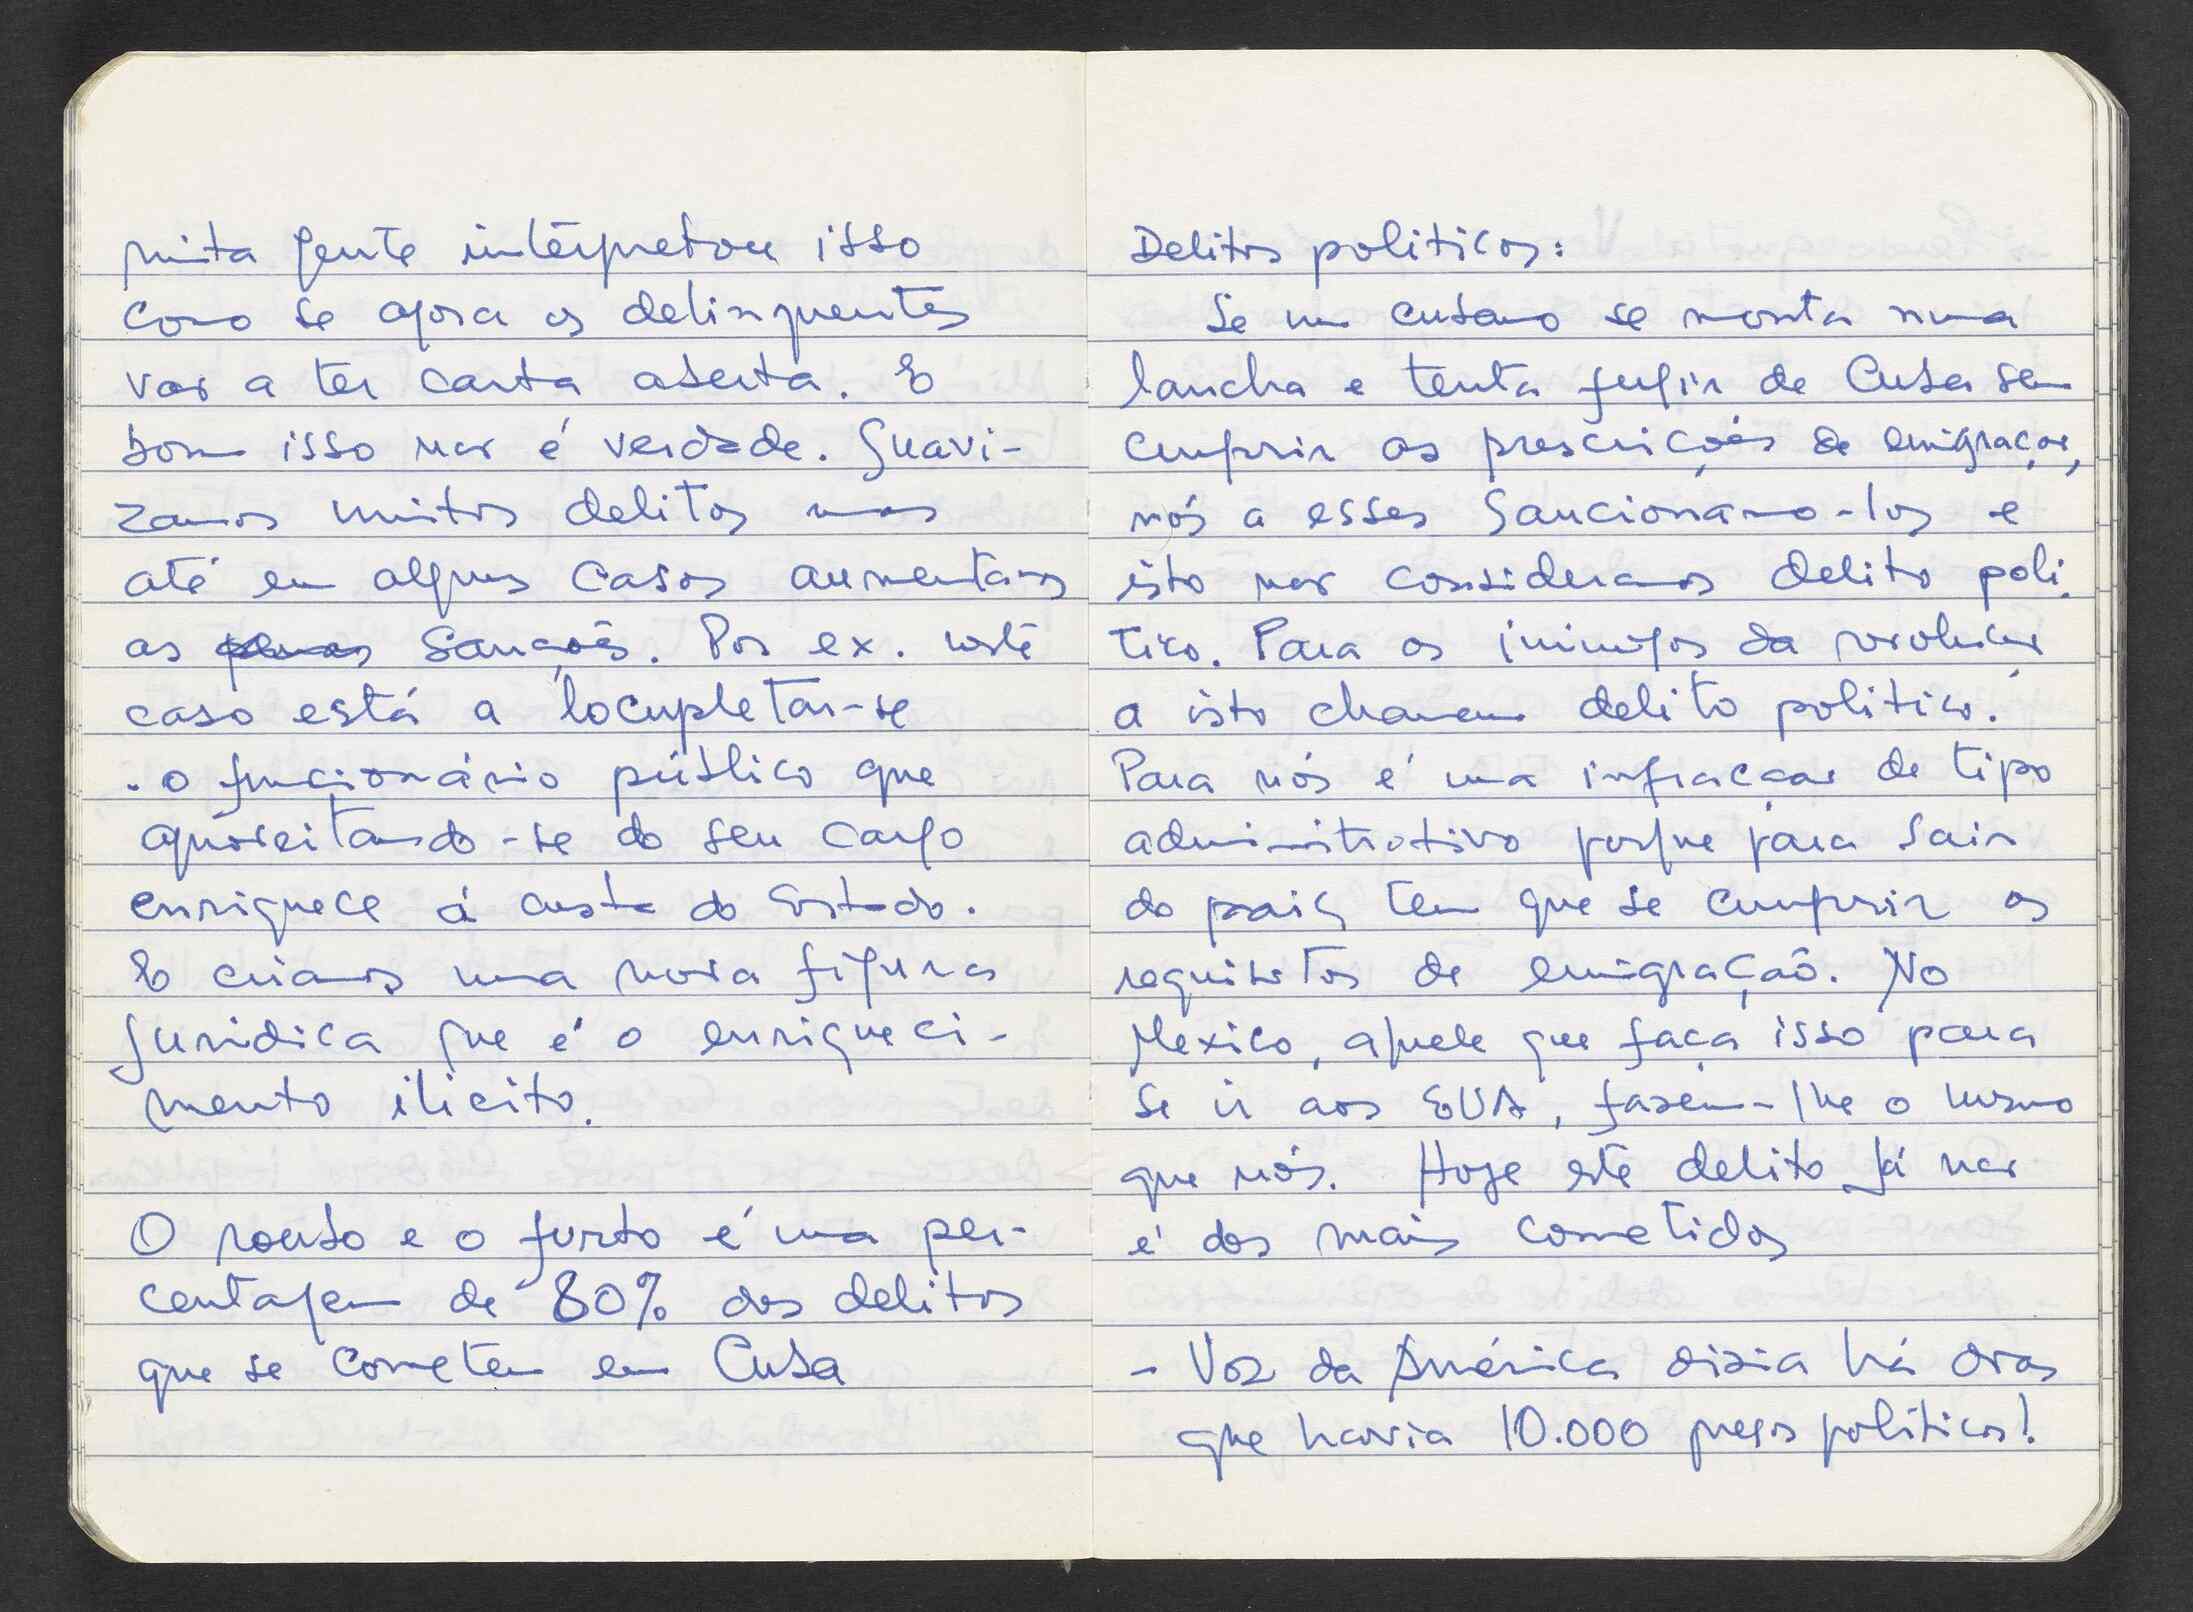 muita gente interpretou isso
como se agora os delinquentes
vão a ter carta aberta. E
bom isso não é verdade. Suavi-
zamos muitos delitos mas
até em alguns casos aumentamos
as penas sanções. Por ex. neste
caso está a locupletar-se
. o funcionário público que
aproveitando-se do seu cargo
enriquece á custa do Estado.
E criamos uma nova figura
jurídica que é o enriqueci-
mento ilicito.
O roubo e o furto é uma per-
centagem de 80% dos delitos
que se cometem em Cuba
Delitos politicos:
Se um cubano se monta numa
lancha e tenta fugir de Cuba sem
cumprir as prescrições de emigração,
nós a esses sancionamo-los e
isto não consideramos delito poli-
tico. Para os inimigos da revolução
a isto chamam delito politico.
Para nós é uma infracção de tipo
administrativo porque para sair
do país tem que se cumprir os
requisitos de emigração. No
Mexico, aquele que faça isso para
se ir aos EUA, fazem-lhe o mesmo
que nós. Hoje este delito já não
é dos mais cometidos
- Voz da América dizia há dias
que havia 10.000 presos políticos!